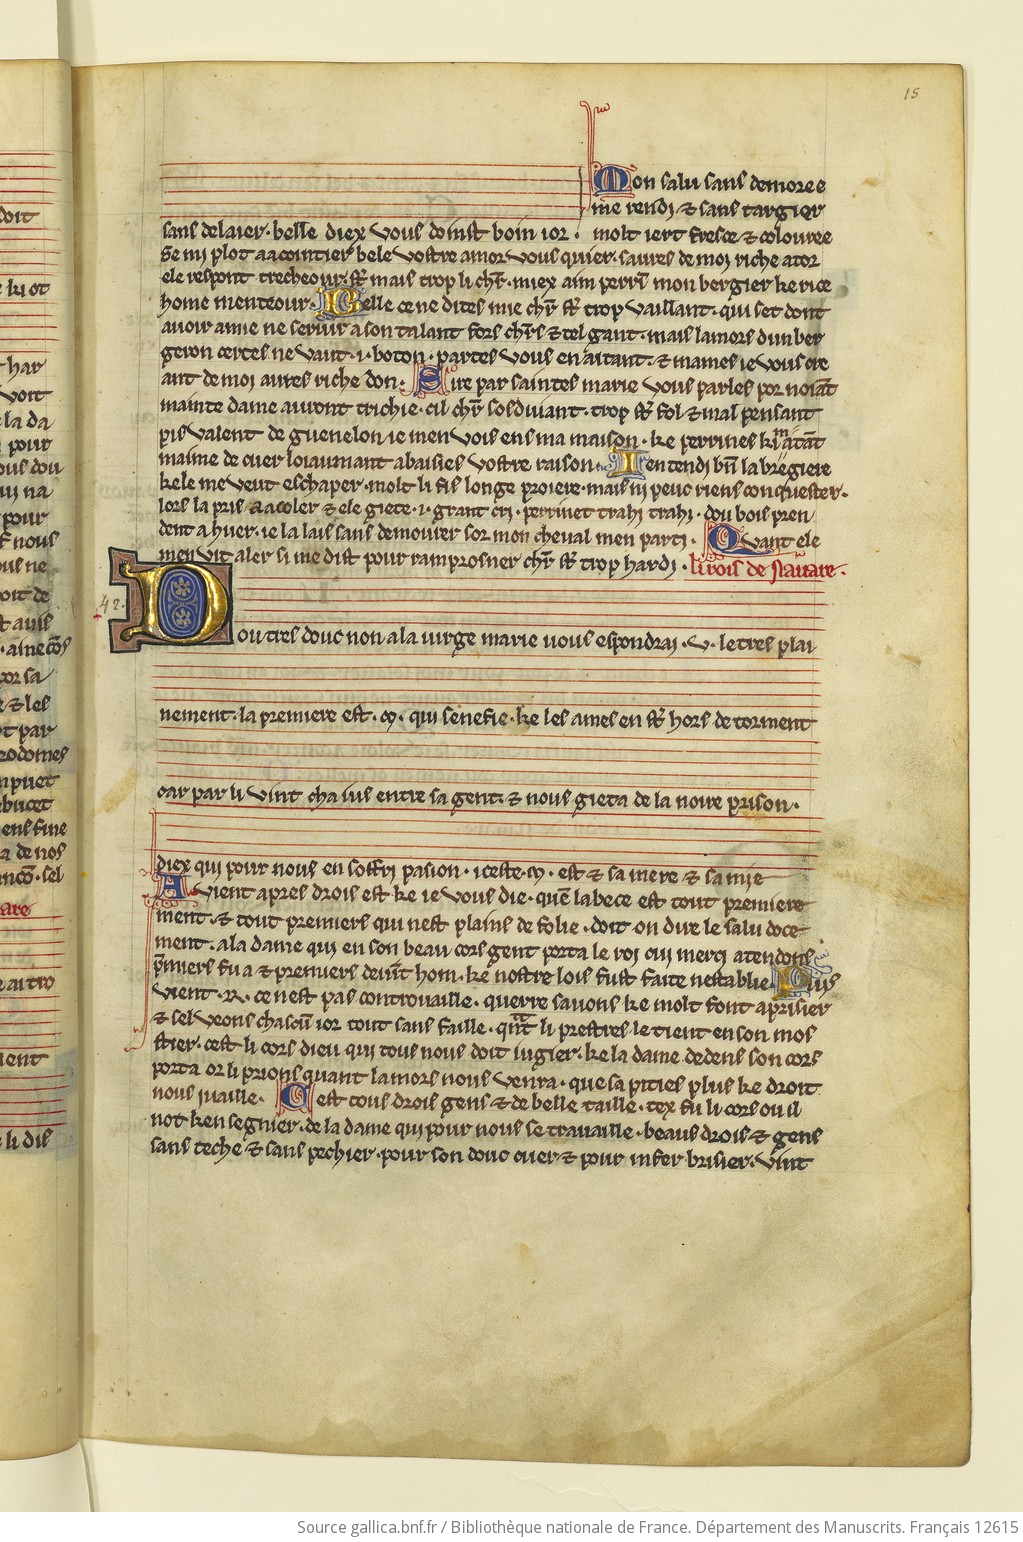 15
Mon salu sans demoree
me rendi & sans targier
sans delaier. belle diex vous doinst boin ior. molt iert fresce & coulouree
Se mi plot aacointier bele vostre amor vous quier. saures de moi riche ator
ele respont trecheour. st̃ mais trop li chr̃. miex aim perrĩ mon bergier ke rice
home menteour. Belle ce ne dites mie chr̃ st̃ trop vaillant. qui set dont
auoir amie ne seruir a son talant fors chr̃s & tel gant. mais lamors dun ber
geron certes ne vaut .i. boton. partes vous en aitant. & mames ie vous cre
ant de moi aures riche don. Sire par saintes marie vous parles por noiãt
mainte dame auront trichie. cil chr̃ sosduiant. trop st̃ fol & mal pensant
pis valent de guenelon ie men vois en sma maison. ke perrines ki matãt
maime de cuer loiaumant abaisies vostre raison. Ientendi bñ la bregiere
kele me veut eschaper. molt li fis longe proiere. mais ni peuc riens conquester.
lors la pris aacoler & ele giete .i. grant cri. perrinet trahi trahi. dou bois pren
dent a huer. ie la lais sans demourer sor mon cheval men parti. Quant ele
men vit aler si me dist pour ramprosner chr̃ st̃ trop hardi. li rois de navare.
42.
Dou tres douc non a la virge marie vous espondrai .v. letres plai
nement. la premiere est .m. qui senefie. ke les ames en st̃ hors de torment
car par li vint cha ius entre sa gent. & nous gieta de la noire prison.
diex qui pour nous en soffri pasion. iceste .m. est & sa mere & sa mie
A vient apres drois est ke ie vous die. quẽ labece est tout premiere
ment. & tout premiers qui nest plains de folie. doit on dire le salu doce
ment. a la dame qui en son beau cors gent porta le roi cui merci atendons
p̃miers fu a & premiers deuĩt hom. ke nostre lois fust faite nestablie. Puis
vient .R. ce nest pas controuaille. querre sauons ke molt font a prisier
& sel veons chascũ ior tout sans faille. qñt li prestres le tient en son mos
stier. cest li cors dieu qui tous nous doit iugier. ke la dame dedens son cors
porta or li prions quant lamors nous venra. que sa pities plus ke droit
nous iuaille. Cest tous drois gens & de belle taille. tex fu li cors ou il
not ken segnier. de la dame qui pour nous se trauaille. beaus drois & gens
sans teche & sans pechier. pour son douc cuer & pour infer brisier. vint
Source gallica.bnf.fr / Bibliothèque nationale de France. Département des Manuscrits. Français 12615